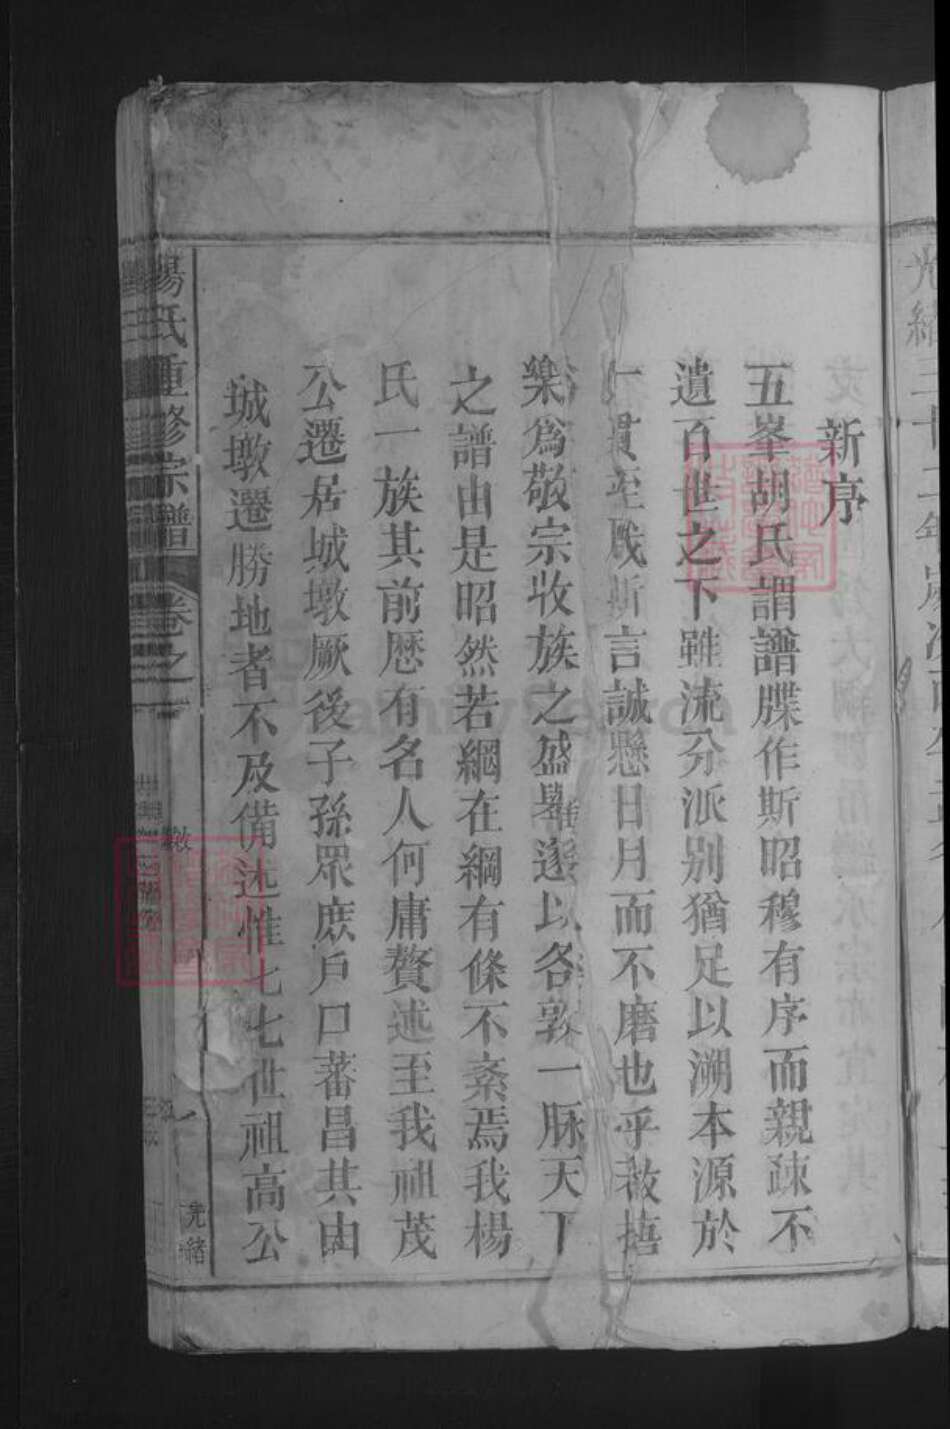 新序
五峯胡氏謂譜牒作斯昭穆有序而親疎不
遺百世之下雖流分派別猶足以溯本源於
一貫至哉斯言誠懸日月而不磨也乎茲
樂爲敬宗收族之盛舉遂以各敦一脉天下
之譜由是昭然若網在綱有條不紊焉我楊
氏一族其前歷有名人何庸贅述至我祖茂
公遷居城墩厥後子孫眾庶戶口蕃昌其由
城墩遷勝地者不及備述惟七世祖高公
楊氏重修宗譜
卷之一
光緒
光緒三十二年歲次